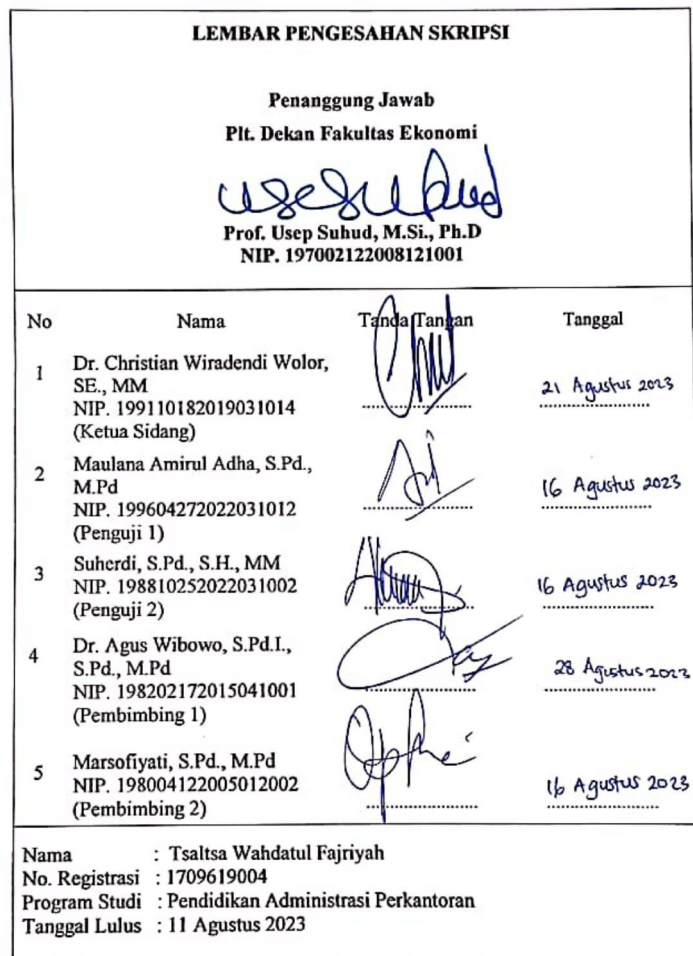 LEMBAR PENGESAHAN SKRIPSI
Penanggung Jawab
Plt. Dekan Fakultas Ekonomi
Prof. Usep Suhud, M.Si., Ph.D
NIP. 197002122008121001
No Nama Tanda Tangan Tanggal
1 Dr. Christian Wiradendi Wolor,
SE., MM
NIP. 199110182019031014
(Ketua Sidang)
21 Agustus 2023
2 Maulana Amirul Adha, S.Pd.,
M.Pd
NIP. 199604272022031012
(Penguji 1)
16 Agustus 2023
3 Suherdi, S.Pd., S.H., MM
NIP. 198810252022031002
(Penguji 2)
16 Agustus 2023
4 Dr. Agus Wibowo, S.Pd.I.,
S.Pd., M.Pd
NIP. 198202172015041001
(Pembimbing 1)
28 Agustus 2023
5 Marsofiyati, S.Pd., M.Pd
NIP. 198004122005012002
(Pembimbing 2)
16 Agustus 2023
Nama : Tsaltsa Wahdatul Fajriyah
No. Registrasi : 1709619004
Program Studi : Pendidikan Administrasi Perkantoran
Tanggal Lulus : 11 Agustus 2023